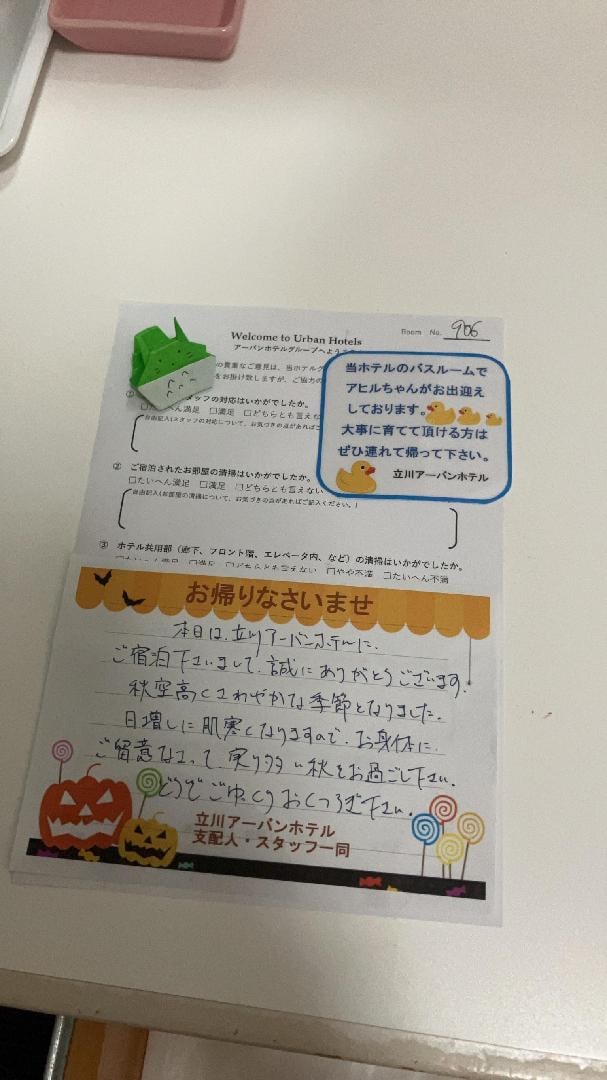 Room No. 906
Welcome to Urban Hotels
アーバンホテルグループへよう
の貴重なご意見は、当ホテルグ
をお掛け致しますが、ご協力の
当ホテルのバスルームで
アヒルちゃんがお出迎え
しております。
大事に育てて頂ける方は
ぜひ連れて帰って下さい。
立川アーバンホテル
① スタッフの対応はいかがでしたか。
□たいへん満足 □満足 □どちらとも言えな
自由記入(スタッフの対応について、お気づきの点があれば
② ご宿泊されたお部屋の清掃はいかがでしたか。
□たいへん満足 □満足 □どちらとも言えない
自由記入(お部屋の清掃について、お気づきの点があればご記入ください。)
③ ホテル共用部（廊下、フロント階、エレベータ内、など）の清掃はいかがでしたか。
□たいへん満足 □満足 □どちらとも言えない □やや不満 □たいへん不満
お帰りなさいませ
本日は、立川アーバンホテルに、
ご宿泊下さいまして、誠にありがとうございます。
秋空高くさわやかな季節となりました。
日増しに肌寒くなりますので、お身体に、
ご留意なさって、実り多い秋をお過ごし下さい。
どうぞごゆっくりおくつろぎ下さい。
立川アーバンホテル
支配人・スタッフ一同